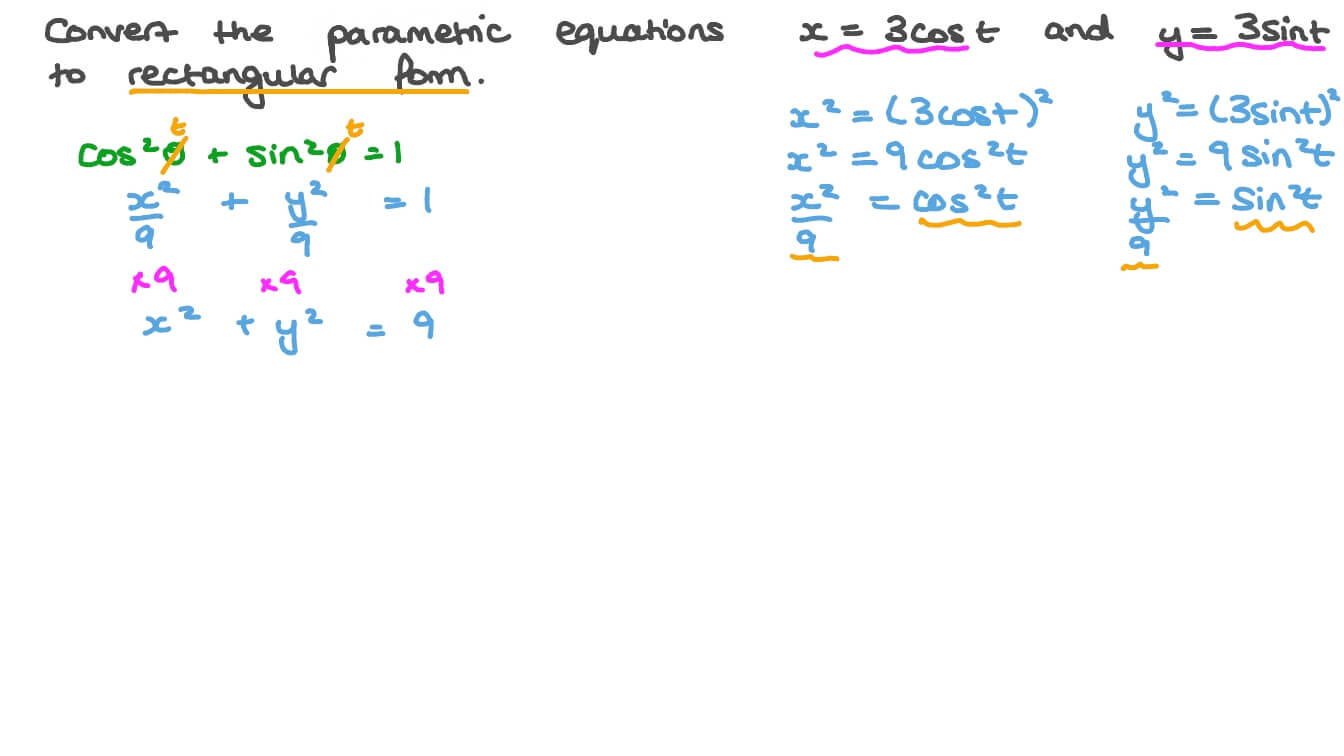 Convert the parametric equations x = 3cost and y = 3sint
to rectangular form.
cos²θ t + sin²θ t = 1
x²/9 + y²/9 = 1
×9 ×9 ×9
x² + y² = 9
x² = (3cost)²
x² = 9cos²t
x²/9 = cos²t
y² = (3sint)²
y² = 9sin²t
y²/9 = sin²t